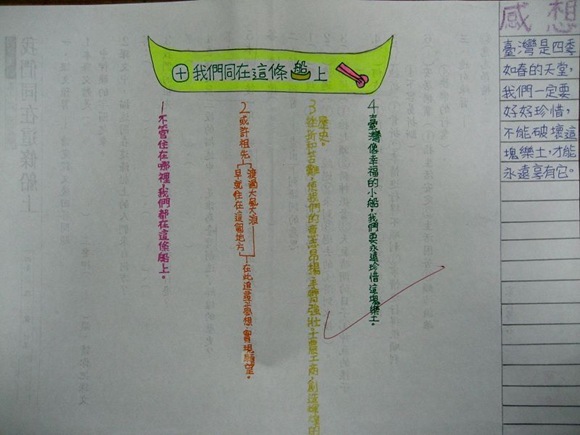 十我們同在這條船上
1不管住在哪裡,我們都在這條船上。
2或許祖先
渡過大風大浪
早就住在這個地方
在此追尋夢想,實現願望。
3歷史。
挫折和苦難,使我們的意志昂揚,手臂強壯。士農工商,創造輝煌的
4臺灣像幸福的小船,我們要永遠珍惜這塊樂土。
感想
臺灣是四季
如春的天堂,
我們一定要
好好珍惜,
不能破壞這
塊樂土,才能
永遠享有它。